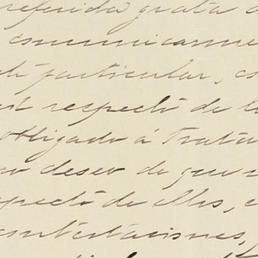 referida grata a
comunicarme
té particular, es
est respecto de l
obligado á tratar
mo deseo de que
specto de ellos, e
contestaciones,